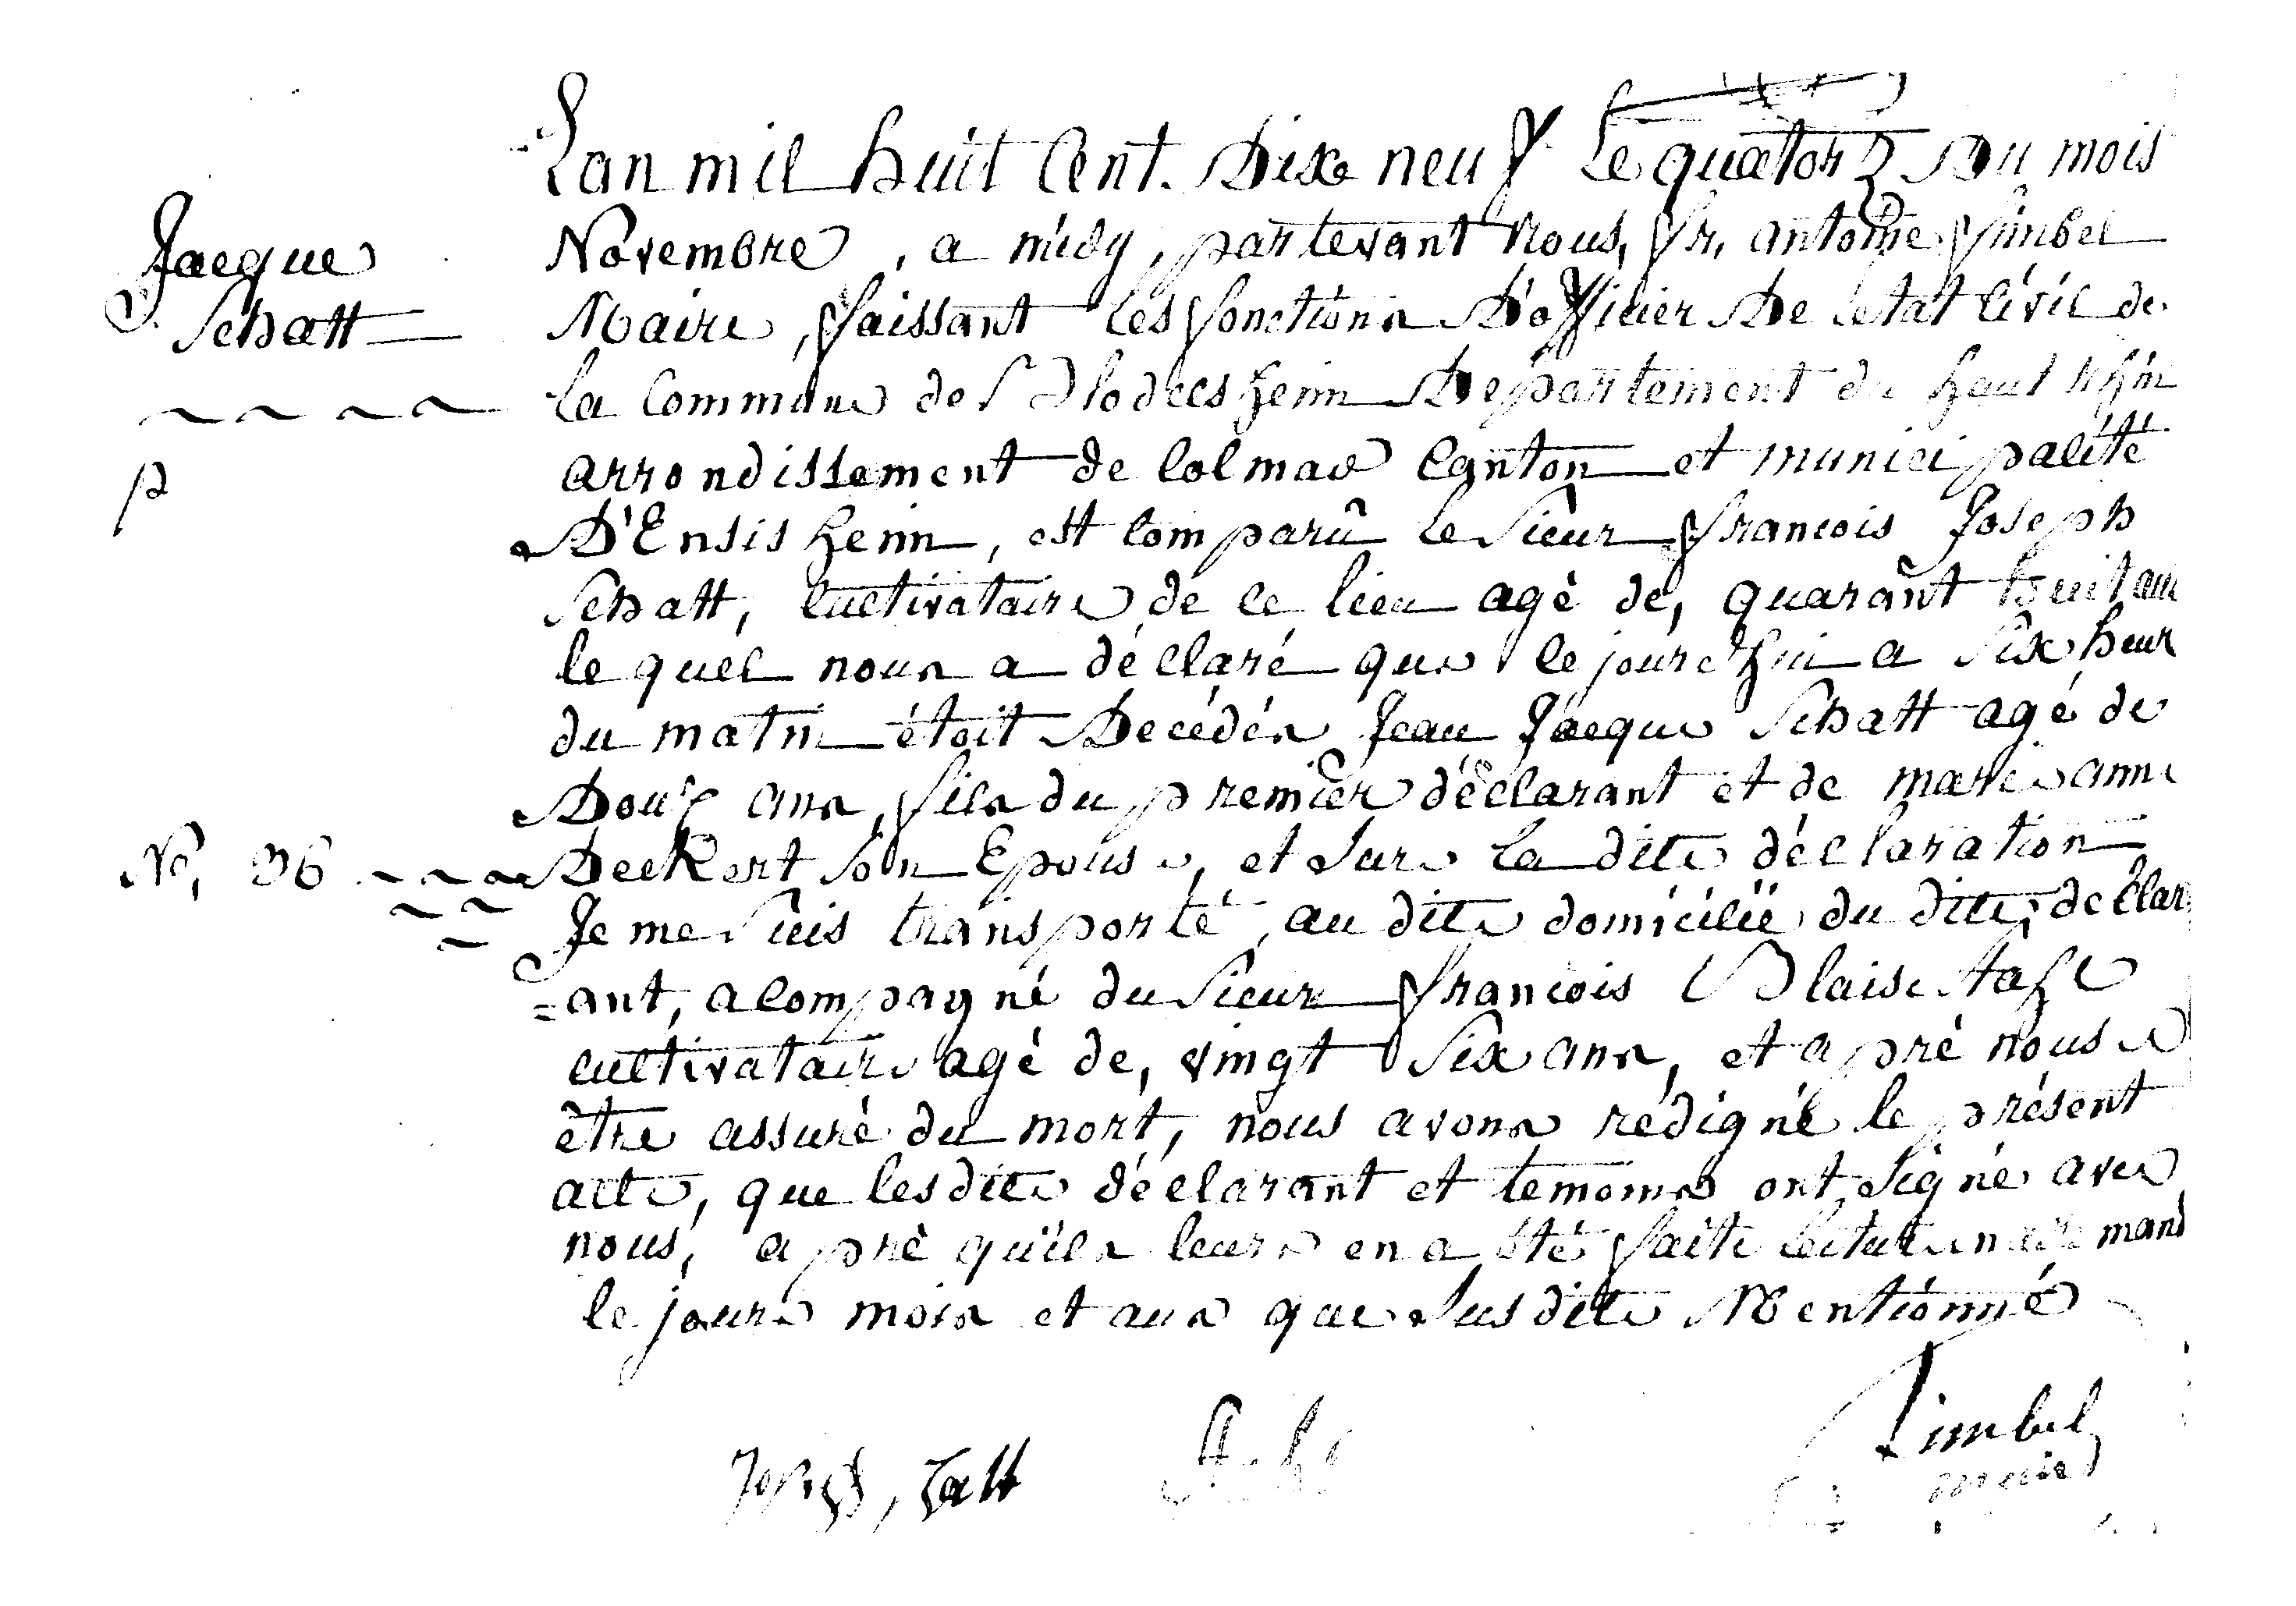 Jacque
Schatt
p
No, 36
Lan mil huit Cent. Dixe neuf Le quatorz Du mois
Novembre, a midy, partevant Nous, fr, antoine fimbel
Maire, faissant les fonctions D'officier De letat Civil de
la Commune de Blodelsheim Departement du haut rhin
arrondissement de Colmar Canton et municipalité
D'Ensisheim, est Comparû le Sieur francois Joseph
Schatt, Cultivataire de ce lieu agè de, quarant huit ans
le quel nous a déclaré que le jourdhui a Six heur
du matin étoit Decédés Jean Jacque Schatt agé de
Douz ans, fils du premier déclarant et de marie anne
Deckert Son Epouse, et Sur la dite déclaration
Je me Suis transporté, au dite domicilië du dite déclar
=ant, acompagné du Sieur francois Blaise
cultivataire agé de, vingt Six ans, et aprè nous
être assuré du mort, nous avons rédigné le présent
acte, que lesdite déclarant et temoins ont Signé avec
nous, aprè qu'ils leurs en a été faite lecture mand
le jours mois et ans que Susdite Mentionné
Joseph, Satt
fimbel
maire